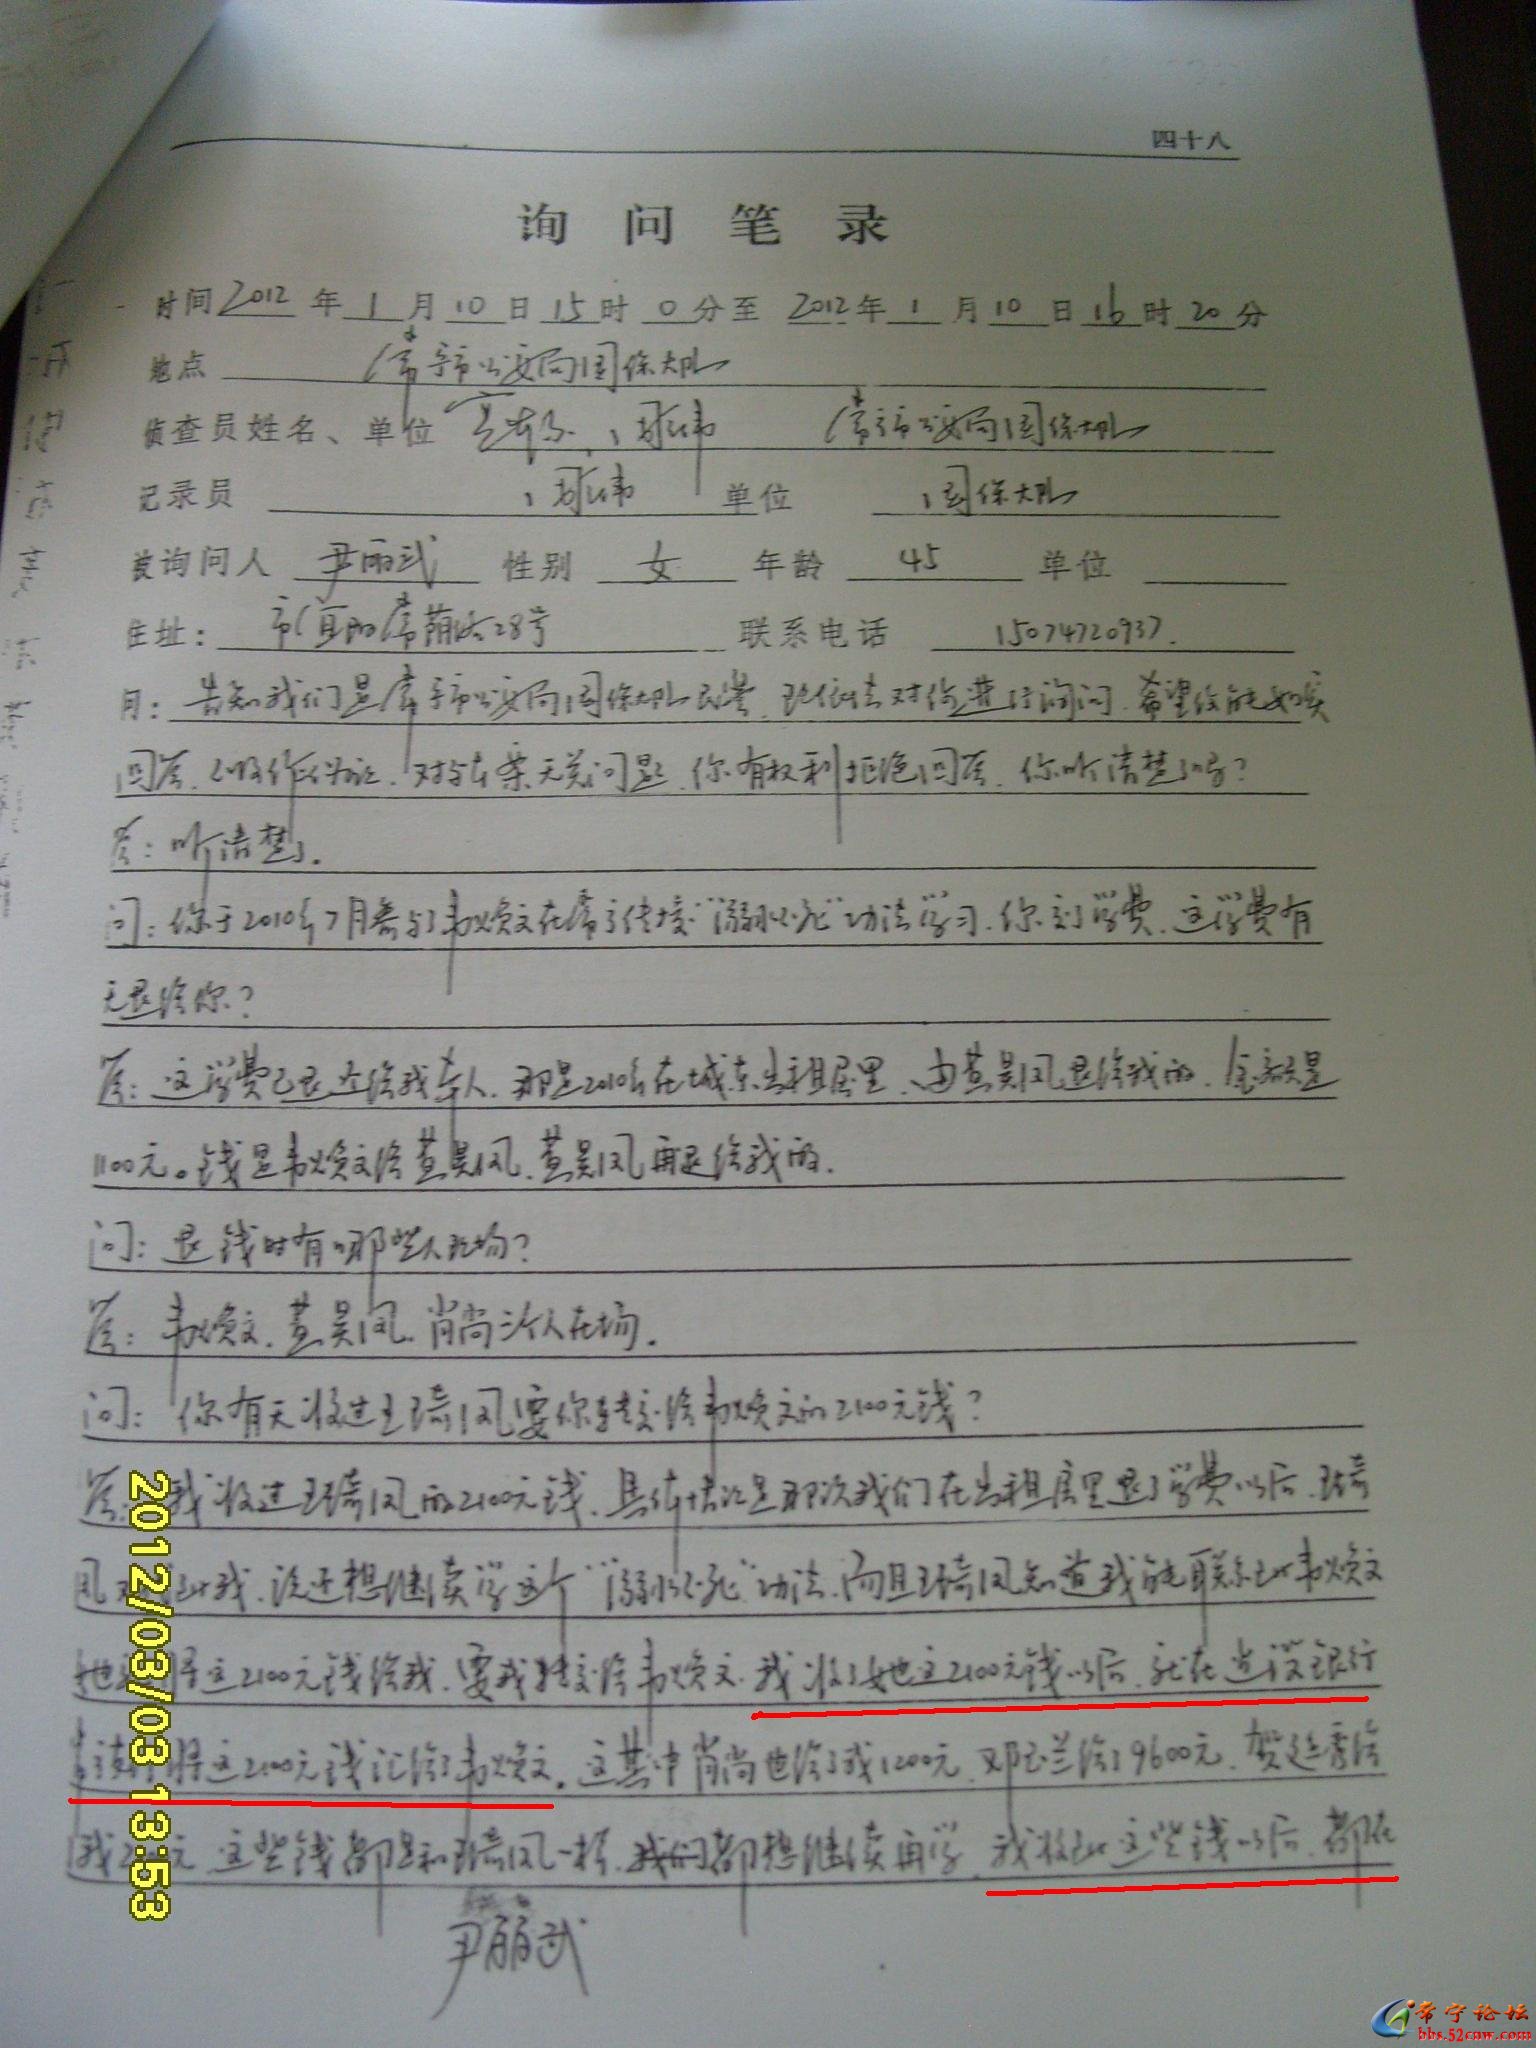 四十八
询问笔录
时间 2012 年 1 月 10 日 15 时 0 分至 2012 年 1 月 10 日 16 时 20 分
地点 常宁市公安局国保大队
侦查员姓名、单位 常宁市公安局国保大队
记录员 单位 国保大队
被询问人 尹丽武 性别 女 年龄 45 单位
住址： 28号 联系电话 15074720937.
问：告知我们是常宁市公安局国保大队民警，现依法对你进行询问，希望你能如实
回答，对与本案无关问题，你有权利拒绝回答，你听清楚了吗？
答：听清楚了。
问：你于2010年7月参与了韦焕文在常宁传授“溺水不死”功法学习，你交了学费，这学费有
无退给你？
答：这学费已退还给我本人，那是2010年在城东出租屋里，由黄昊凤退给我的，金额是
1100元。钱是韦焕文给黄昊凤，黄昊凤再退给我的。
问：退钱时有哪些人现场？
答：韦焕文、黄昊凤、肖尚三个人在场。
问：你有无收过王琦凤要你转交给韦焕文的2100元钱？
答：我收过王琦凤的2100元钱，具体情况是那次我们在出租屋里退了学费以后，王琦
凤 我，说还想继续学这个“溺水不死”功法，而且王琦凤知道我能联系上韦焕文
她 将这2100元钱给我，要我转交给韦焕文，我收了她这2100元钱以后，就在建设银行
将这2100元钱汇给了韦焕文。这其中肖尚也给了我1200元，邓玉兰给了9600元，贺延秀给
我 元，这些钱都是和王琦凤一样，我们都想继续再学，我收到这些钱以后，都在
尹丽武
2012/03/03 13:53
常宁论坛
bbs.52cnw.com